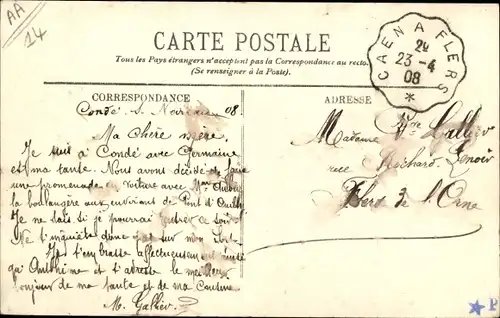 AA
14
CARTE POSTALE
Tous les Pays étrangers n'acceptent pas la Correspondance au recto
(Se renseigner à la Poste).
CAEN A FLERS
24
23 - 4
08
*
CORRESPONDANCE
Condé s. Noireau 08.
Ma chère mère.
Je suis à Condé avec Germaine
et ma tante. Nous avons décidé de faire
une promenade en voiture avec Mme
la boulangère aux environs de Pont d'Ouilly
Je ne sais si je pourrai rentrer ce soir
Ne t'inquiète donc pas sur mon sort.
Je t'embrasse affectueusement ainsi
qu'Anthime et t'adresse le meilleur
bonjour de ma tante et de ma Cousine
M. Gallier
ADRESSE
Madame Vve Gallier
rue Richard Lenoir
Flers de l'Orne